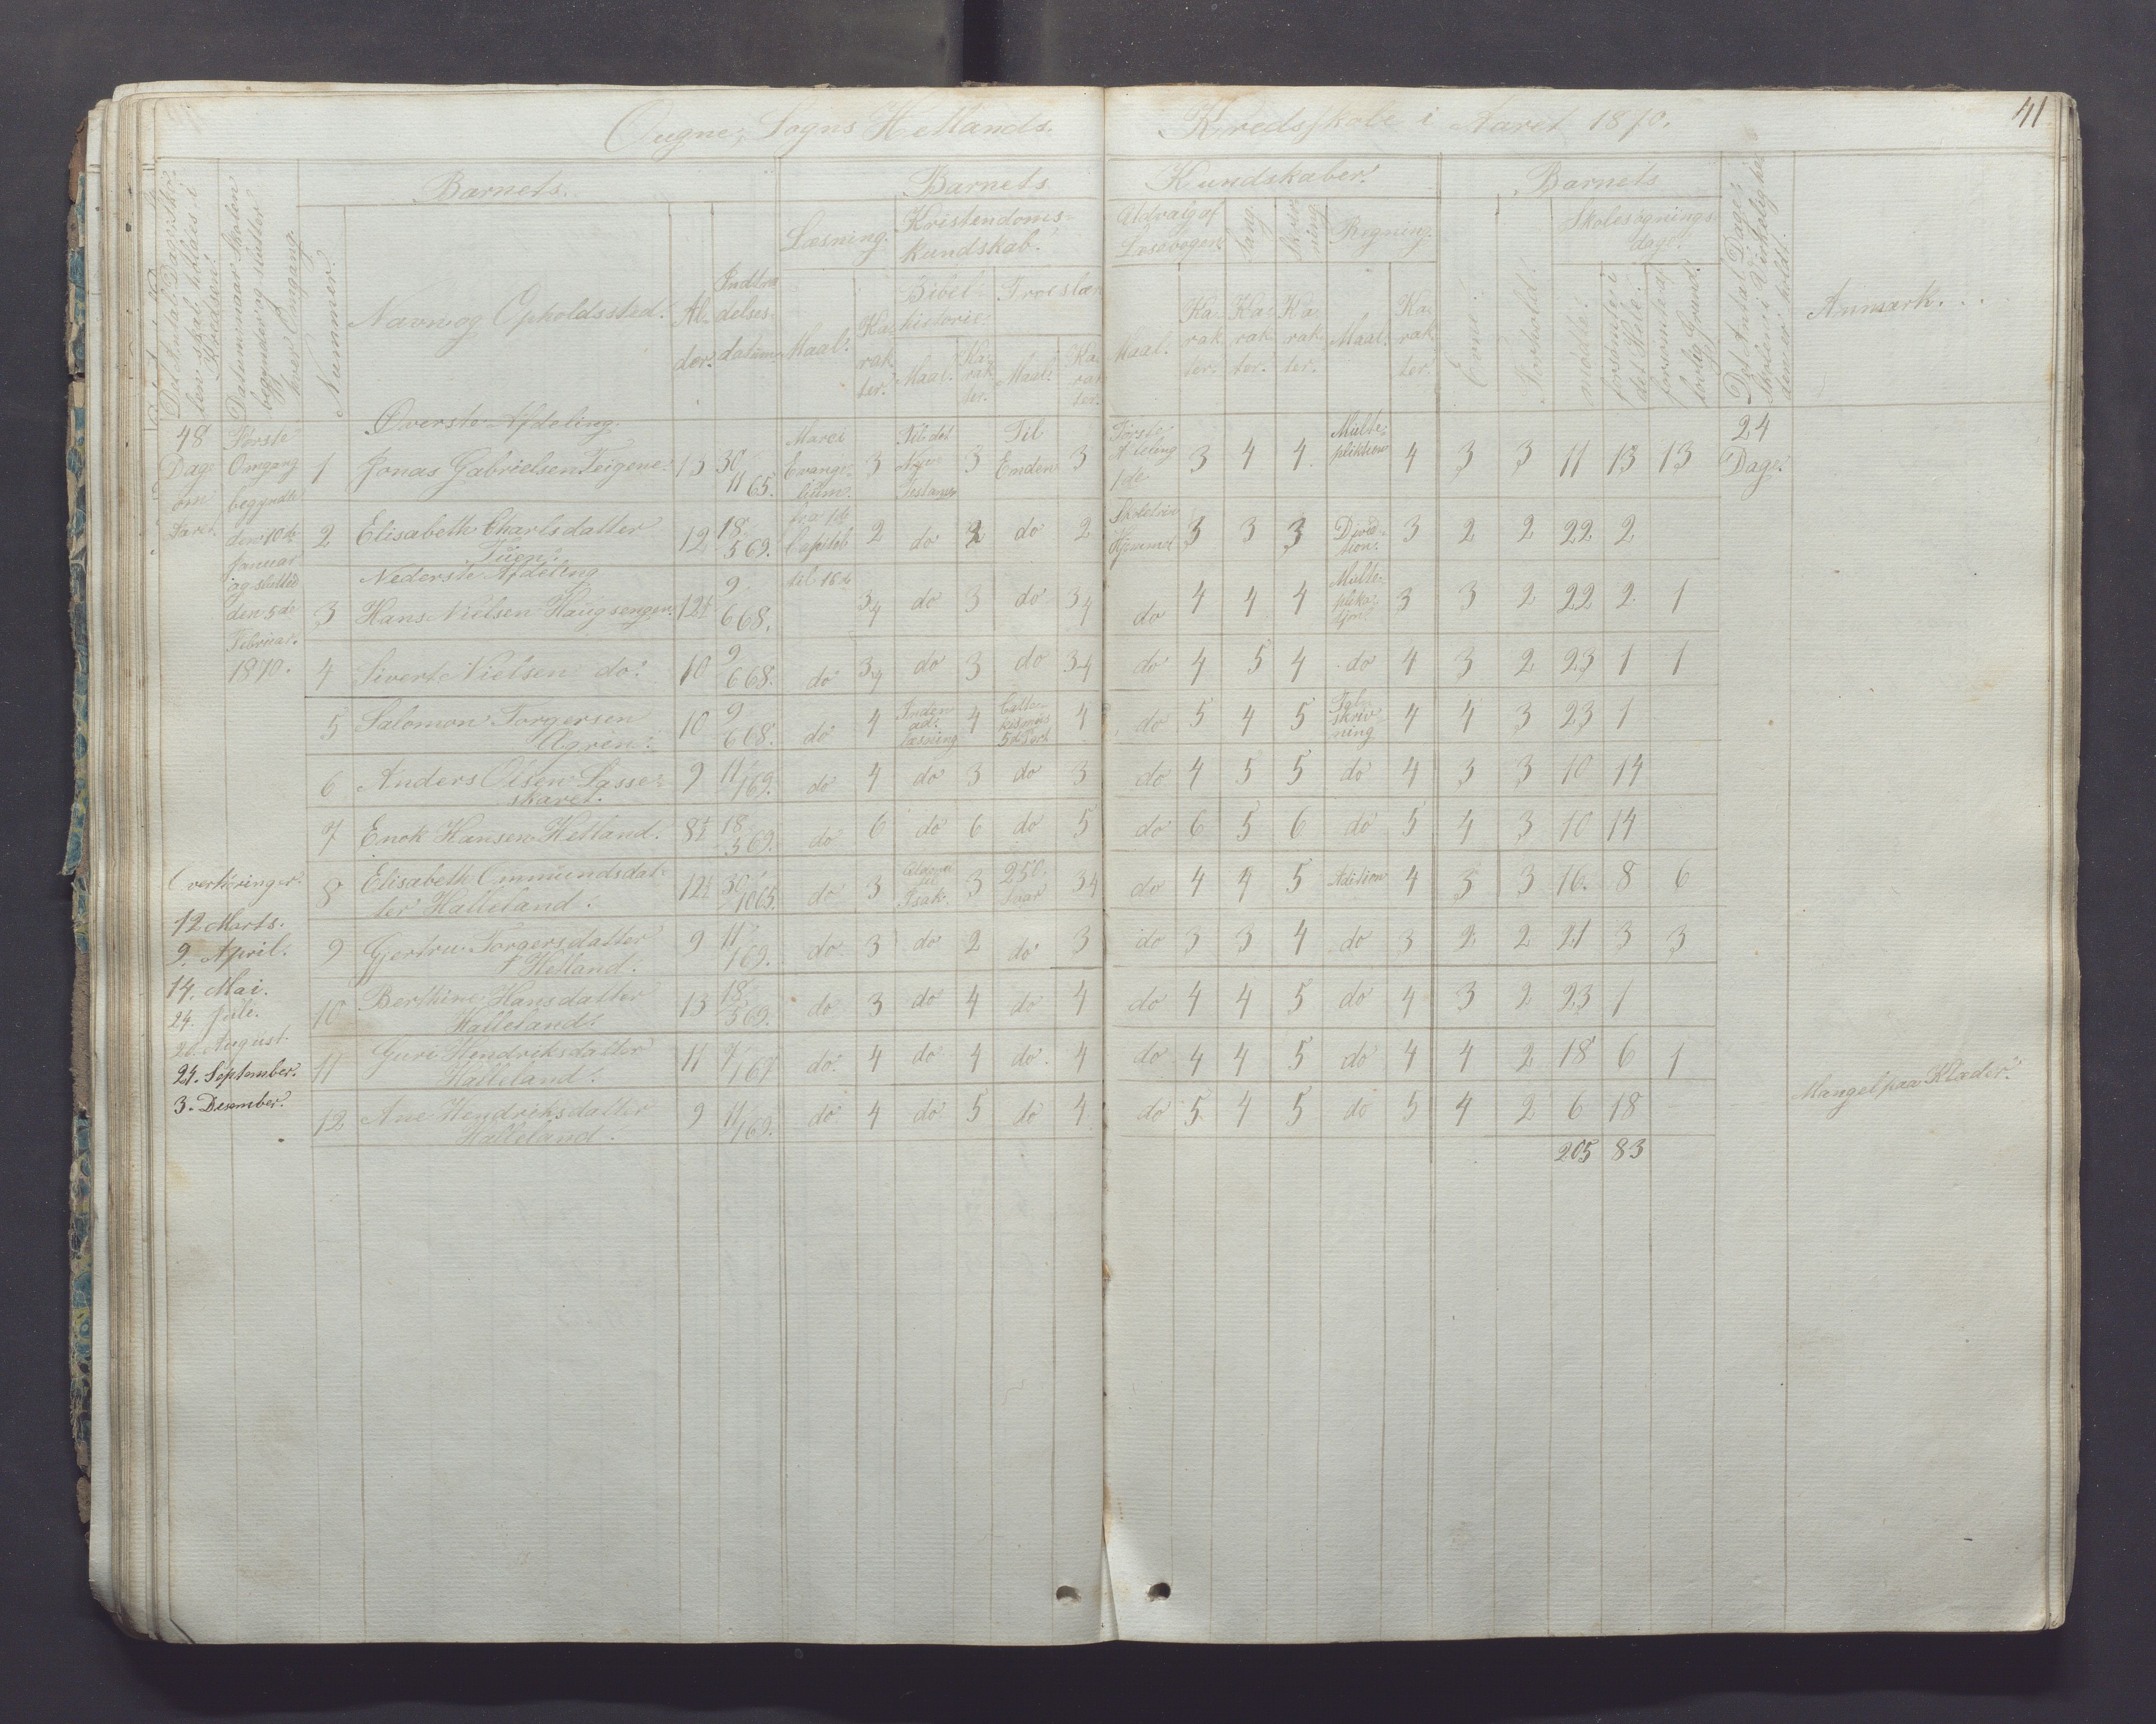 41
Ougne, Sogns Hetlands. Kredsskole i Aaret 1870.
Det Antal Dage Skolen skal holdes i Kredsen.
Datum naar Skolen begynder og slutter hver Omgang.
Nummer.
Barnets.
Navn og Opholdssted.
Alder.
Indtrædelsesdatum.
Barnets Kundskaber.
Læsning.
Maal. Karakter.
Kristendomskundskab.
Bibelhistorie.
Maal. Karakter.
Troeslære
Maal. Karakter.
Udvalg af Læsebogen.
Maal. Karakter.
Sang. Karakter.
Skrivning. Karakter.
Regning.
Maal. Karakter.
Barnets
Evne.
Forhold.
Skolesøgningsdage.
mødte.
forsømte i det Hele.
forsømte af lovlig Grund.
Det Antal Dage Skolen i Virkeligheden er holdt.
Anmærk...
48 Dage om Aaret.
Første Omgang begyndte den 10de Januar og sluttede den 5de Februar. 1870.
24 Dage.
Øverste Afdeling.
1 Jonas Gabrielsen Teigene. 13 30/11 65. Marci Evangelium. 3 Til det Nye Testamen 3 Til Enden 3 Første Afdeling 1de 3 4 4 Multepliktion 4 3 3 11 13 13
2 Elisabeth Charlsdatter Tuen. 12 18/5 69. fra 1te Capitel 2 do 2 do 2 3 3 3 Division. 3 2 2 22 2
Nederste Afdeling
3 Hans Nielsen Haugsengen. 12½ 9/6 68. til 16de 3-4 do 3 do 3-4 do 4 4 4 Multeplikasjon 3 3 2 22 2 1
4 Sivert Nielsen do. 10 9/6 68. do 3-4 do 3 do 3-4 do 4 5 4 do 4 3 2 23 1 1
5 Salomon Torgersen Ø̈gren. 10 9/6 68. do 4 Indenadlæsning 4 5te Part 4 do 5 4 5 Talskrivning 4 4 3 23 1
6 Anders Olsen Lasseskaret. 9 11/1 69. do 4 do 3 do 3 do 4 5 5 do 4 3 3 10 14
7 Enok Hansen Hetland. 8½ 18/5 69. do 6 do 6 do 5 do 6 5 6 do 5 4 3 10 14
8 Elisabeth Ommundsdatter Halleland. 12½ 30/10 65. do 3 Isak. 3 250. 3-4 do 4 4 5 Adision 4 3 3 16. 8 6
9 Gjertru Torgersdatter Hetland. 9 11/1 69. do 3 do 2 do 3 do 3 3 4 do 3 2 2 21 3 3
10 Berthine Hansdatter Halleland. 13 18/5 69. do 3 do 4 do 4 do 4 4 5 do 4 3 2 23 1
11 Guri Hendriksdatter Halleland. 11 7/1 67 do. 4 do 4 do. 4 do 4 4 5 do 4 4 2 18 6 1
12 Ane Hendriksdatter Halleland. 9 11/1 69. do 4 do 5 do 4 do 5 4 5 do 5 4 2 6 18
Mangel paa Klæder.
205 83
Overhøringer.
12 Marts.
9. April.
14. Mai.
24. Juli.
20. August.
24. September.
3. Desember.